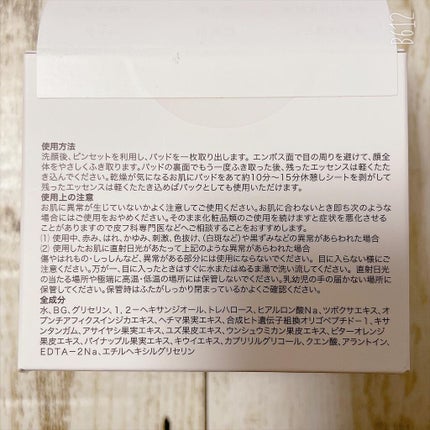 B612
使用方法
洗顔後、ピンセットを利用し、パッドを一枚取り出します。エンボス面で目の周りを避けて、顔全
体をやさしくふき取ります。パッドの裏面でもう一度ふき取った後、残ったエッセンスは軽くたた
き込んでください。乾燥が気になるお肌にパッドをあて約10分〜15分休憩しシートを剥がして
残ったエッセンスは軽くたたき込めばパックとしても使用いただけます。
使用上の注意
お肌に異常が生じていないかよく注意してご使用ください。お肌に合わないとき即ち次のような
場合にはご使用をおやめください。そのまま化粧品類のご使用を続けますと症状を悪化させる
ことがありますので皮フ科専門医などへご相談することをおすすめします。
(1) 使用中、赤み、はれ、かゆみ、刺激、色抜け、(白斑など)や黒ずみなどの異常があらわれた場合
(2) 使用したお肌に直射日光があたって上記のような異常があらわれた場合
傷やはれもの・しっしんなど、異常がある部分には使用にならないでください。目に入らない様にご
注意ください。万が一、目に入ったときはすぐに水またはぬるま湯で洗い流してください。直射日光
の当たる場所や極端に高温・低温の場所には保管しないでください。乳幼児の手の届かない場所に
保管してください。保管時はふたがしっかり閉まっているかよくご確認ください。
全成分
水、BG、グリセリン、1,2ーヘキサンジオール、トレハロース、ヒアルロン酸Na、ツボクサエキス、オ
プンチアフィクスインジカエキス、ヘチマ果実エキス、合成ヒト遺伝子組換オリゴペプチドー1、キサ
ンタンガム、アサイヤシ果実エキス、ユズ果皮エキス、ウンシュウミカン果皮エキス、ビターオレンジ
果皮エキス、パイナップル果実エキス、キウイエキス、カプリリルグリコール、クエン酸、アラントイン、
EDTAー2Na、エチルヘキシルグリセリン